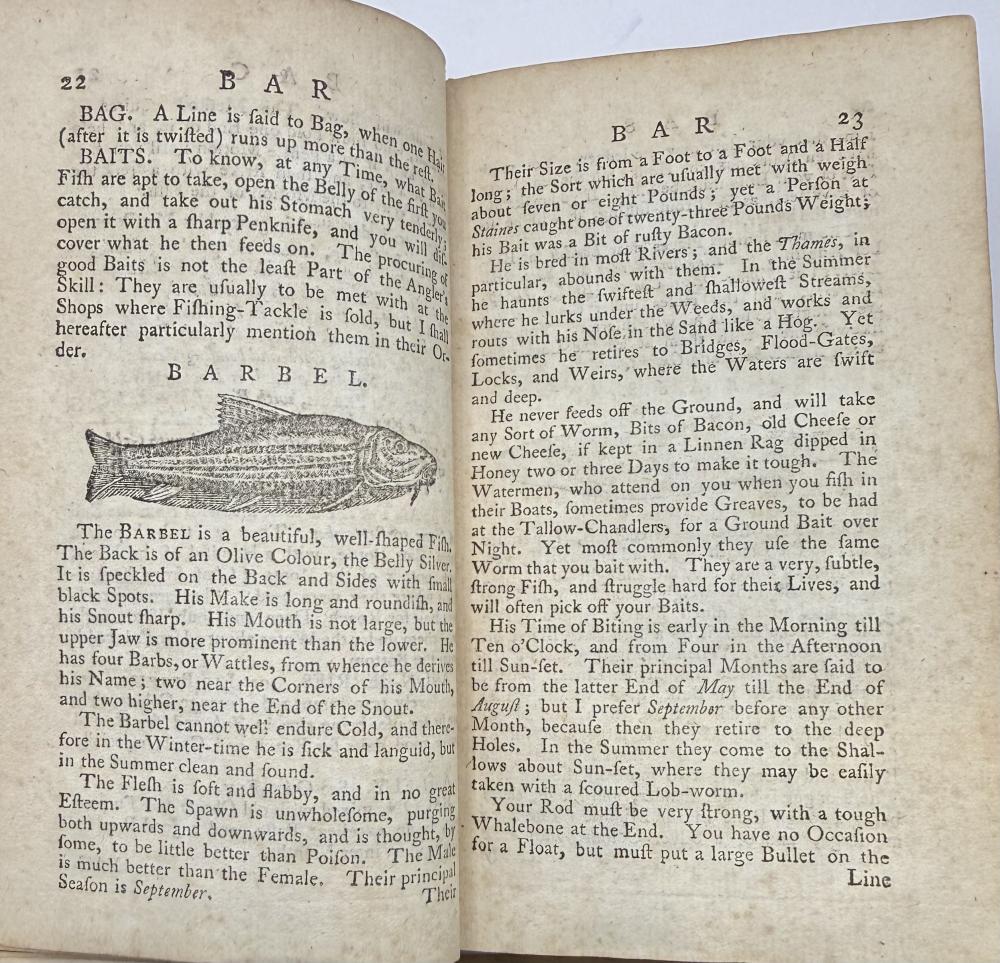 22 B A R
BAG. A Line is ſaid to Bag, when one Hair
(after it is twiſted) runs up more than the reſt.
BAITS. To know, at any Time, what Bait
Fiſh are apt to take, open the Belly of the firſt you
catch, and take out his Stomach very tenderly;
open it with a ſharp Penknife, and you will diſ-
cover what he then feeds on. The procuring of
good Baits is not the leaſt Part of the Angler's
Skill: They are uſually to be met with at the
Shops where Fiſhing-Tackle is ſold, but I ſhall
hereafter particularly mention them in their Or-
der.
B A R B E L.
The BARBEL is a beautiful, well-ſhaped Fiſh.
The Back is of an Olive Colour, the Belly Silver.
It is ſpeckled on the Back and Sides with ſmall
black Spots. His Make is long and roundiſh, and
his Snout ſharp. His Mouth is not large, but the
upper Jaw is more prominent than the lower. He
has four Barbs, or Wattles, from whence he derives
his Name; two near the Corners of his Mouth,
and two higher, near the End of the Snout.
The Barbel cannot well endure Cold, and there-
fore in the Winter-time he is ſick and languid, but
in the Summer clean and ſound.
The Fleſh is ſoft and flabby, and in no great
Eſteem. The Spawn is unwholeſome, purging
both upwards and downwards, and is thought, by
ſome, to be little better than Poiſon. The Male
is much better than the Female. Their principal
Seaſon is September.
Their
B A R 23
Their Size is from a Foot to a Foot and a Half
long; the Sort which are uſually met with weigh
about ſeven or eight Pounds; yet a Perſon at
Staines caught one of twenty-three Pounds Weight;
his Bait was a Bit of ruſty Bacon.
He is bred in moſt Rivers; and the Thames, in
particular, abounds with them. In the Summer
he haunts the ſwifteſt and ſhalloweſt Streams,
where he lurks under the Weeds, and works and
routs with his Noſe in the Sand like a Hog. Yet
ſometimes he retires to Bridges, Flood-Gates,
Locks, and Weirs, where the Waters are ſwift
and deep.
He never feeds off the Ground, and will take
any Sort of Worm, Bits of Bacon, old Cheeſe or
new Cheeſe, if kept in a Linnen Rag dipped in
Honey two or three Days to make it tough. The
Watermen, who attend on you when you fiſh in
their Boats, ſometimes provide Greaves, to be had
at the Tallow-Chandlers, for a Ground Bait over
Night. Yet moſt commonly they uſe the ſame
Worm that you bait with. They are a very, ſubtle,
ſtrong Fiſh, and ſtruggle hard for their Lives, and
will often pick off your Baits.
His Time of Biting is early in the Morning till
Ten o'Clock, and from Four in the Afternoon
till Sun-ſet. Their principal Months are ſaid to
be from the latter End of May till the End of
Auguſt; but I prefer September before any other
Month, becauſe then they retire to the deep
Holes. In the Summer they come to the Shal-
lows about Sun-ſet, where they may be eaſily
taken with a ſcoured Lob-worm.
Your Rod muſt be very ſtrong, with a tough
Whalebone at the End. You have no Occaſion
for a Float, but muſt put a large Bullet on the
Line